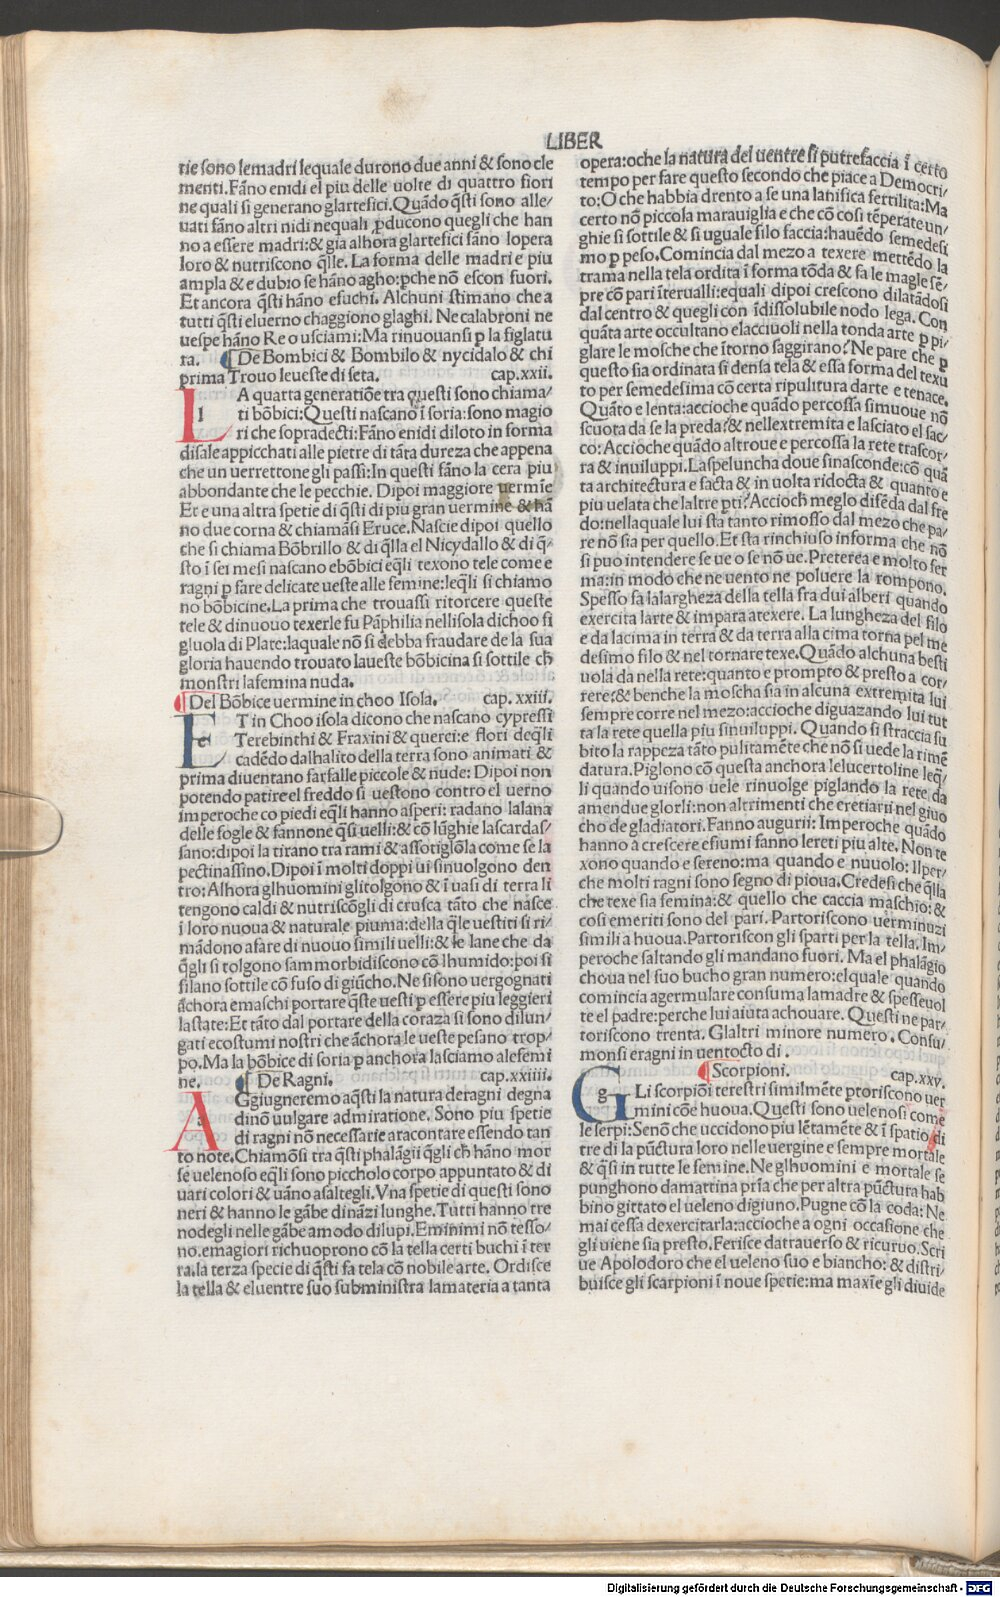 LIBER
tie sono le madri lequale durono due anni & sono cle
menti.Fãno enidi el piu delle uolte di quattro fiori
ne quali si generano glartefici.Quãdo q̃sti sono alle/
uati fãno altri nidi nequali ꝓducono quegli che han
no a essere madri:& gia alhora glartefici fãno lopera
loro & nutriscono q̃lle.La forma delle madri e piu
ampla & e dubio se hãno agho:pche nõ escon fuori.
Et ancora q̃sti hãno efuchi. Alchuni stimano che a
tutti q̃sti eluerno chaggiono glaghi. Ne calabroni ne
uespe hãno Re o usciami:Ma rinuouansi p la figlatu
ra. ¶De Bombici & Bombilo & nycidalo & chi
prima Trouo leueste di seta. cap.xxii.
LlA quarta generatiõe tra questi sono chiama/
ti bõbici:Questi nascano ĩ soria:sono magio
ri che sopradecti:Fãno enidi diloto in forma
disale appicchati alle pietre di tãta dureza che appena
che un uerrettone gli passi:In questi fãno la cera piu
abbondante che le pecchie. Dipoi maggiore uermĩe
Et e una altra spetie di q̃sti di piu gran uermine & hã
no due corna & chiamãsi Eruce.Nascie dipoi quello
che si chiama Bõbrillo & di q̃lla el Nicydallo & di q̃/
sto ĩ sei mesi nascano ebõbici eq̃li texono tele come e
ragni p fare delicate ueste alle femine:leq̃li si chiamo
no bõbicine.La prima che trouassi ritorcere queste
tele & dinuouo texerle fu Pãphilia nellisola dichoo fi
gluola di Plate:laquale nõ si debba fraudare de la sua
gloria hauendo trouato laueste bõbicina si sottile ch̃
monstri lafemina nuda.
¶Del Bõbice uermine in choo Isola. cap.xxiii.
EeT in Choo isola dicono che nascano cypressi
Terebinthi & Fraxini & querei:e fiori deq̃li
cadẽdo dalhalito della terra sono animati &
prima diuentano farfalle piccole & nude: Dipoi non
potendo patire el freddo si uestono contro el uerno
imperoche co piedi eq̃li hanno asperi: radano lalana
delle fogle & fannone q̃si uelli:& cõ lũghie lascardas/
sano:dipoi la tirano tra rami & assotiglõla come se la
pectinassino.Dipoi ĩ molti doppi ui sinuolgono den
tro:Alhora glhuomini glitolgono & ĩ uasi di terra li
tengono caldi & nutriscõgli di crusca tãto che nasce
ĩ loro nuoua & naturale piuma:della q̃le uestiti si ri/
mãdono afare di nuouo simili uelli:& le lane che da
q̃gli si tolgono sam morbidiscono cõ lhumido:poi si
filano sottile cõ fuso di giũcho.Ne si sono uergognati
ãchora emaschi portare q̃ste uesti p essere piu leggieri
lastate:Et tãto dal portare della coraza si sono dilun/
gati ecostumi nostri che ãchora le ueste pesano trop/
po.Ma la bõbice di soria p anchora lasciamo alefemi
ne. ¶De Ragni. cap.xxiiii.
AaGgiugneremo aq̃sti la natura deragni degna
dinõ uulgare admiratione. Sono piu spetie
di ragni nõ necessarie aracontare essendo tan
to note.Chiamõsi tra q̃sti phalãgii q̃gli ch̃ hãno mor
se uelenoso eq̃li sono piccholo corpo appuntato & di
uari colori & uãno asaltegli.Vna spetie di questi sono
neri & hanno le gãbe dinãzi lunghe.Tutti hanno tre
nodegli nelle gãbe amodo dilupi.Eminimi nõ tesso/
no.emagiori richuoprono cõ la tella certi buchi ĩ ter
ra.la terza specie di q̃sti fa tela cõ nobile arte. Ordisce
la tella & eluentre suo subministra lamateria a tanta
opera:oche la natura del uentre si putrefaccia ĩ certo
tempo per fare questo secondo che piace a Democri/
to:O che habbia drento a se una lanifica fertilita:Ma
certo nõ piccola marauiglia e che cõ cosi tẽperate un/
ghie si sottile & si uguale filo faccia:hauẽdo semedesi
mo p peso.Comincia dal mezo a texere mettẽdo la
trama nella tela ordita ĩ forma tõda & fa le magle sẽ/
pre cõ pari ĩterualli:equali dipoi crescono dilatãdosi
dal centro & quegli con ĩdissolubile nodo lega. Con
quãta arte occultano elacciuoli nella tonda arte p pi/
glare le mosche che ĩtorno saggirano? Ne pare che p
questo sia ordinata si densa tela & essa forma del texu
to per semedesima cõ certa ripulitura darte e tenace.
Quãto e lenta:accioche quãdo percossa simuoue nõ
scuota da se la preda?& nellextremita e lasciato el sac/
co:Accioche quãdo altroue e percossa la rete trascor/
ra & inuiluppi.Laspeluncha doue sinasconde:cõ quã
ta architectura e facta & in uolta ridocta & quanto e
piu uelata che laltre pti? Accioch̃ meglo difẽda dal fre
do:nellaquale lui sta tanto rimosso dal mezo che pa/
re nõ sia per quello.Et sta rinchiuso informa che nõ
si puo intendere se ue o se nõ ue.Preterea e molto fer
ma:in modo che ne uento ne poluere la rompono.
Spesso fa lalargheza della tella fra dui alberi quando
exercita larte & impara atexere. La lungheza del filo
e da lacima in terra & da terra alla cima torna pel me
desimo filo & nel tornare texe.Quãdo alchuna besti
uola da nella rete:quanto e prompto & presto a cor/
rere:& benche la moscha sia in alcuna extremita lui
sempre corre nel mezo:accioche diguazando lui tut
ta la rete quella piu sinuiluppi. Quando si straccia su
bito la rappeza tãto pulitamẽte che nõ si uede la rimẽ
datura.Piglono cõ questa anchora lelucertoline leq̃/
li quando uisono uele rinuolge piglando la rete da
amendue glorli:non altrimenti che eretiarii nel giuo
cho de gladiatori.Fanno augurii: Imperoche quãdo
hanno a crescere efiumi fanno lereti piu alte. Non te
xono quando e sereno:ma quando e nuuolo: Il per/
che molti ragni sono segno di pioua.Credesi che q̃lla
che texe sia femina:& quello che caccia maschio:&
cosi emeriti sono del pari. Partoriscono uerminuzi
simili a huoua.Partoriscon gli sparti per la tella. Im/
peroche saltando gli mandano fuori. Ma el phalãgio
choua nel suo bucho gran numero:elquale quando
comincia agermulare consuma lamadre & spesseuol
te el padre:perche lui aiuta achouare. Questi ne par/
toriscono trenta. Glaltri minore numero. Consu/
monsi eragni in uentocto di.
¶Scorpioni. cap.xxv.
GgLi scorpiõi terestri similmẽte ptoriscono uer
mini cõe huoua.Questi sono uelenosi come
le serpi:Senõ che uccidono piu lẽtamẽte & ĩ spatio di
tre di la pũctura loro nelle uergine e sempre mortale
& q̃si in tutte le femine.Ne glhuomini e mortale se
punghono damattina prĩa che per altra pũctura hab
bino gittato el ueleno digiuno.Pugne cõ la coda: Ne
mai cessa dexercitarla:accioche a ogni occasione che
gli uiene sia presto.Ferisce datrauerso & ricuruo.Scri
ue Apolodoro che el ueleno suo e biancho: & distri/
buisce gli scarpioni ĩ noue spetie:ma maxĩe gli diuide
Digitalisierung gefördert durch die Deutsche Forschungsgemeinschaft - DFG